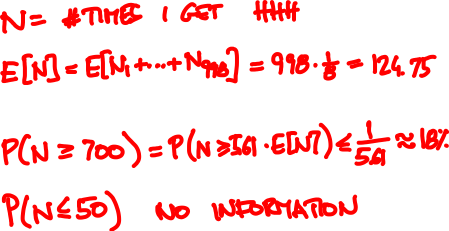 N = #TIMES I GET HHH
E[N] = E[N₁ + ... + N₉₉₈] = 998 · 1/8 = 124.75
P(N ≥ 700) = P(N ≥ 5.61 · E[N]) ≤ 1/5.61 ≈ 18%
P(N ≤ 50) NO INFORMATION